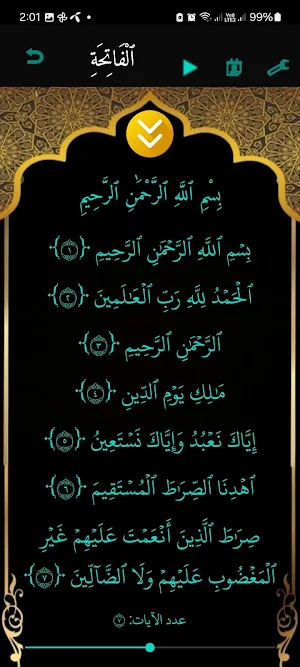 2:01 99%
ٱلْفَاتِحَةِ
بِسْمِ ٱللَّهِ ٱلرَّحْمَٰنِ ٱلرَّحِيمِ
بِسْمِ ٱللَّهِ ٱلرَّحْمَٰنِ ٱلرَّحِيمِ ﴿١﴾
ٱلْحَمْدُ لِلَّهِ رَبِّ ٱلْعَٰلَمِينَ ﴿٢﴾
ٱلرَّحْمَٰنِ ٱلرَّحِيمِ ﴿٣﴾
مَٰلِكِ يَوْمِ ٱلدِّينِ ﴿٤﴾
إِيَّاكَ نَعْبُدُ وَإِيَّاكَ نَسْتَعِينُ ﴿٥﴾
ٱهْدِنَا ٱلصِّرَٰطَ ٱلْمُسْتَقِيمَ ﴿٦﴾
صِرَٰطَ ٱلَّذِينَ أَنْعَمْتَ عَلَيْهِمْ غَيْرِ
ٱلْمَغْضُوبِ عَلَيْهِمْ وَلَا ٱلضَّآلِّينَ ﴿٧﴾
عدد الآيات: ٧